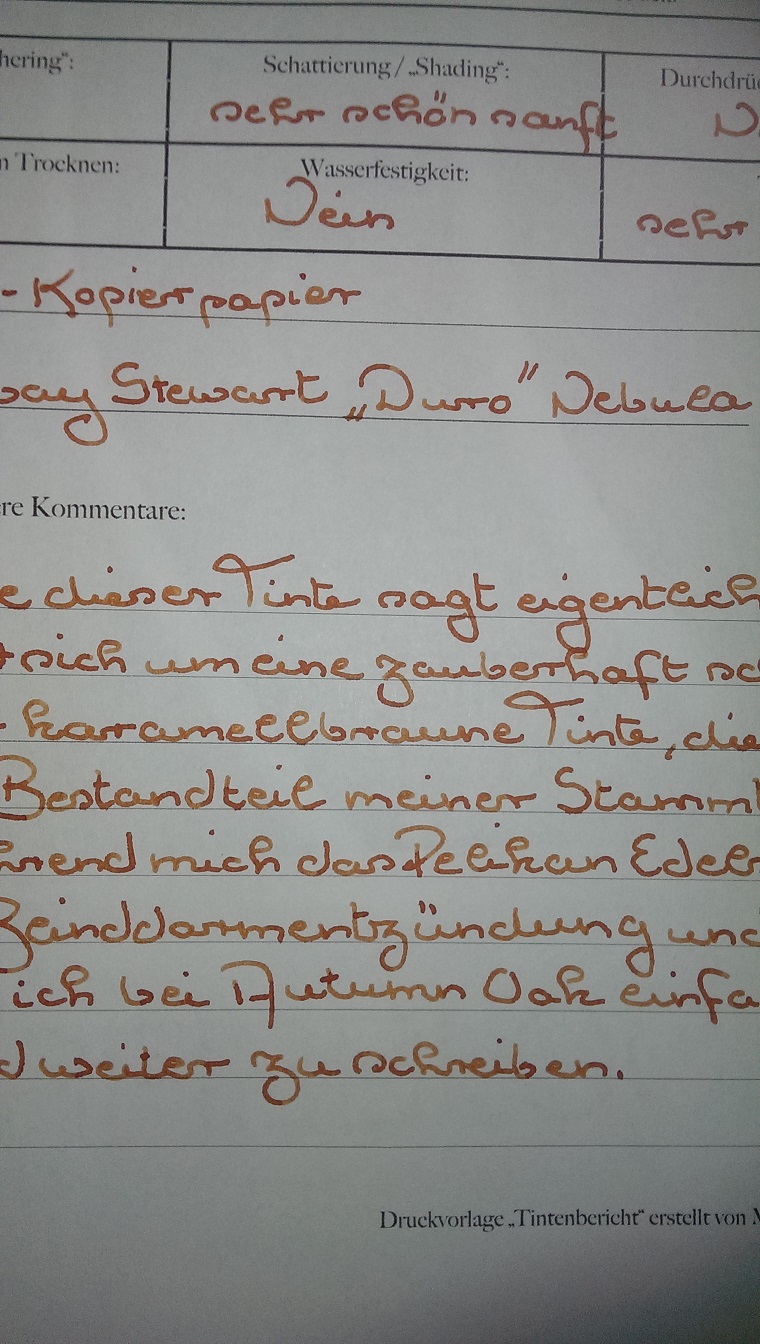 hering“: Schattierung / „Shading“: Durchdrü
sehr schön sanft N
n Trocknen: Wasserfestigkeit:
Nein sehr
- Kopierpapier
say Stewart „Duro" Nebula
re Kommentare:
e dieser Tinte sagt eigentlich
sich um eine zauberhaft sc
karamellbraune Tinte, die
Bestandteil meiner Stamm
hrend mich das Pelikan Edel
Beinddarmentzündung und
ich bei Autumn Oak einfa
d weiter zu schreiben.
Druckvorlage „Tintenbericht“ erstellt von M